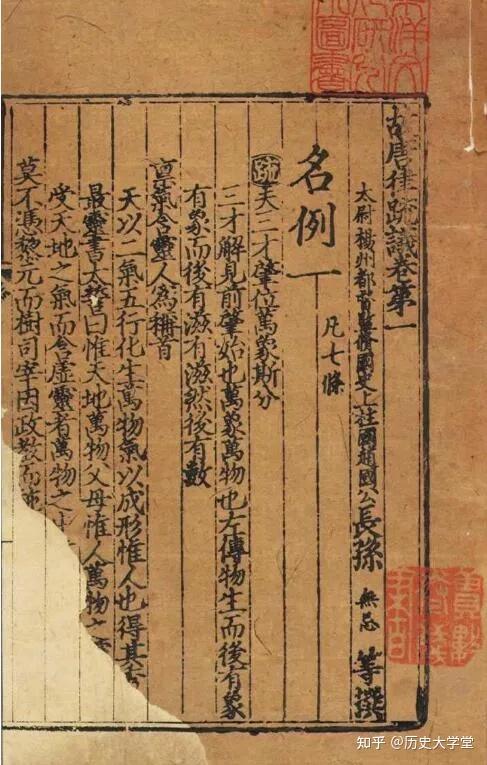 故唐律疏議卷第一
太尉楊州都督監脩國史上柱國趙國公長孫無忌等撰
名例一 凡七條
疏夫三才肇位萬象斯分
三才解見前肇始也萬象萬物也左傳物生而後有象
有象而後有滋有滋然後有數
稟氣含靈人為稱首
天以二氣五行化生萬物氣以成形惟人也得其
最靈書太誓曰惟天地萬物父母惟人萬物之
受天地之氣而含虛靈者萬物之
莫不憑黎元而樹司宰因政教而
知乎 @历史大学堂